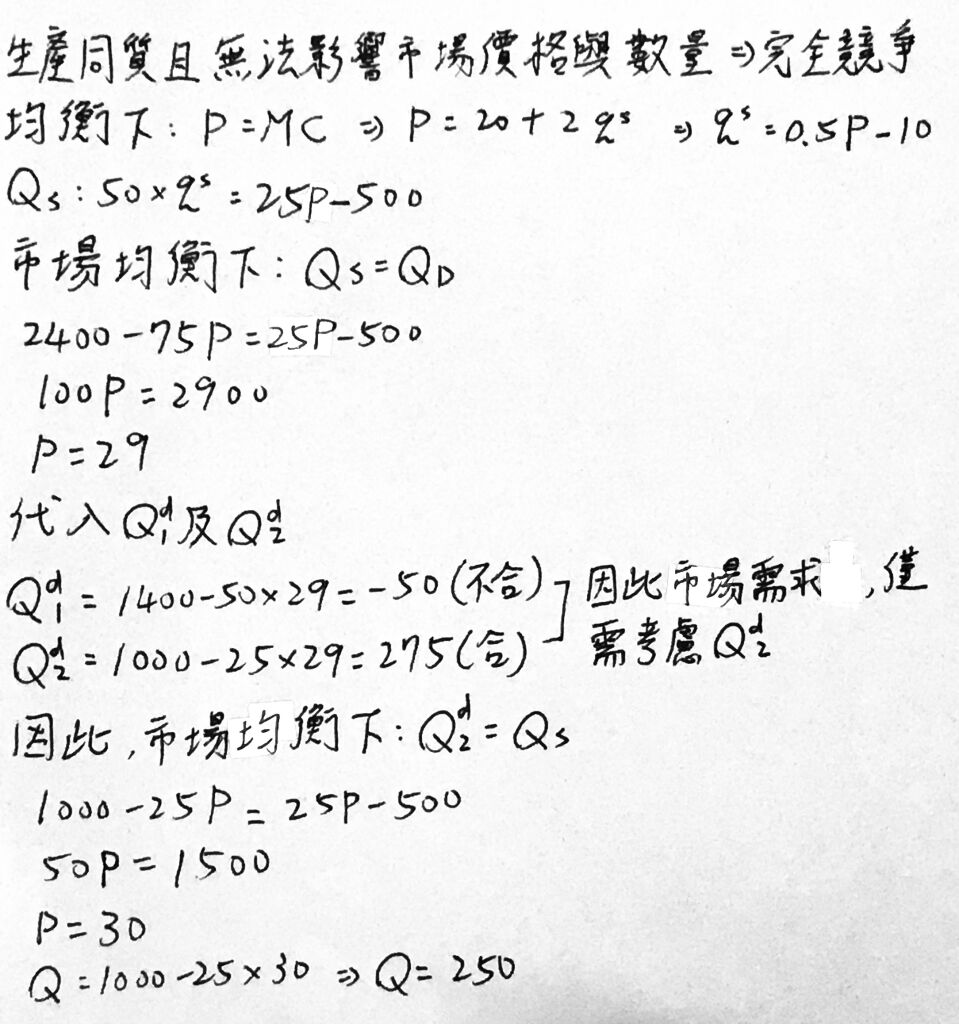 生產同質且無法影響市場價格與數量⇒完全競爭
均衡下: P=MC ⇒ P=20+2qˢ ⇒ qˢ=0.5P-10
Qs: 50×qˢ=25P-500
市場均衡下: Qs=QD
2400-75P=25P-500
100P=2900
P=29
代入Q₁ᵈ及Q₂ᵈ
Q₁ᵈ=1400-50×29=-50(不合)
Q₂ᵈ=1000-25×29=275(合)
因此市場需求,僅
需考慮Q₂ᵈ
因此,市場均衡下: Q₂ᵈ=Qs
1000-25P=25P-500
50P=1500
P=30
Q=1000-25×30⇒Q=250